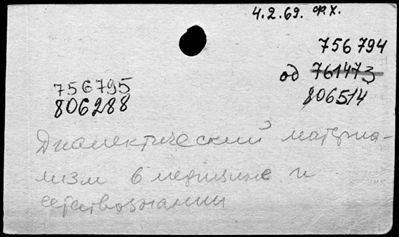 4.2.69. Ф.Х.
756794
од 761473
806514
756795
806288
Диалектический матери-
ализм в медицине и
естествознании